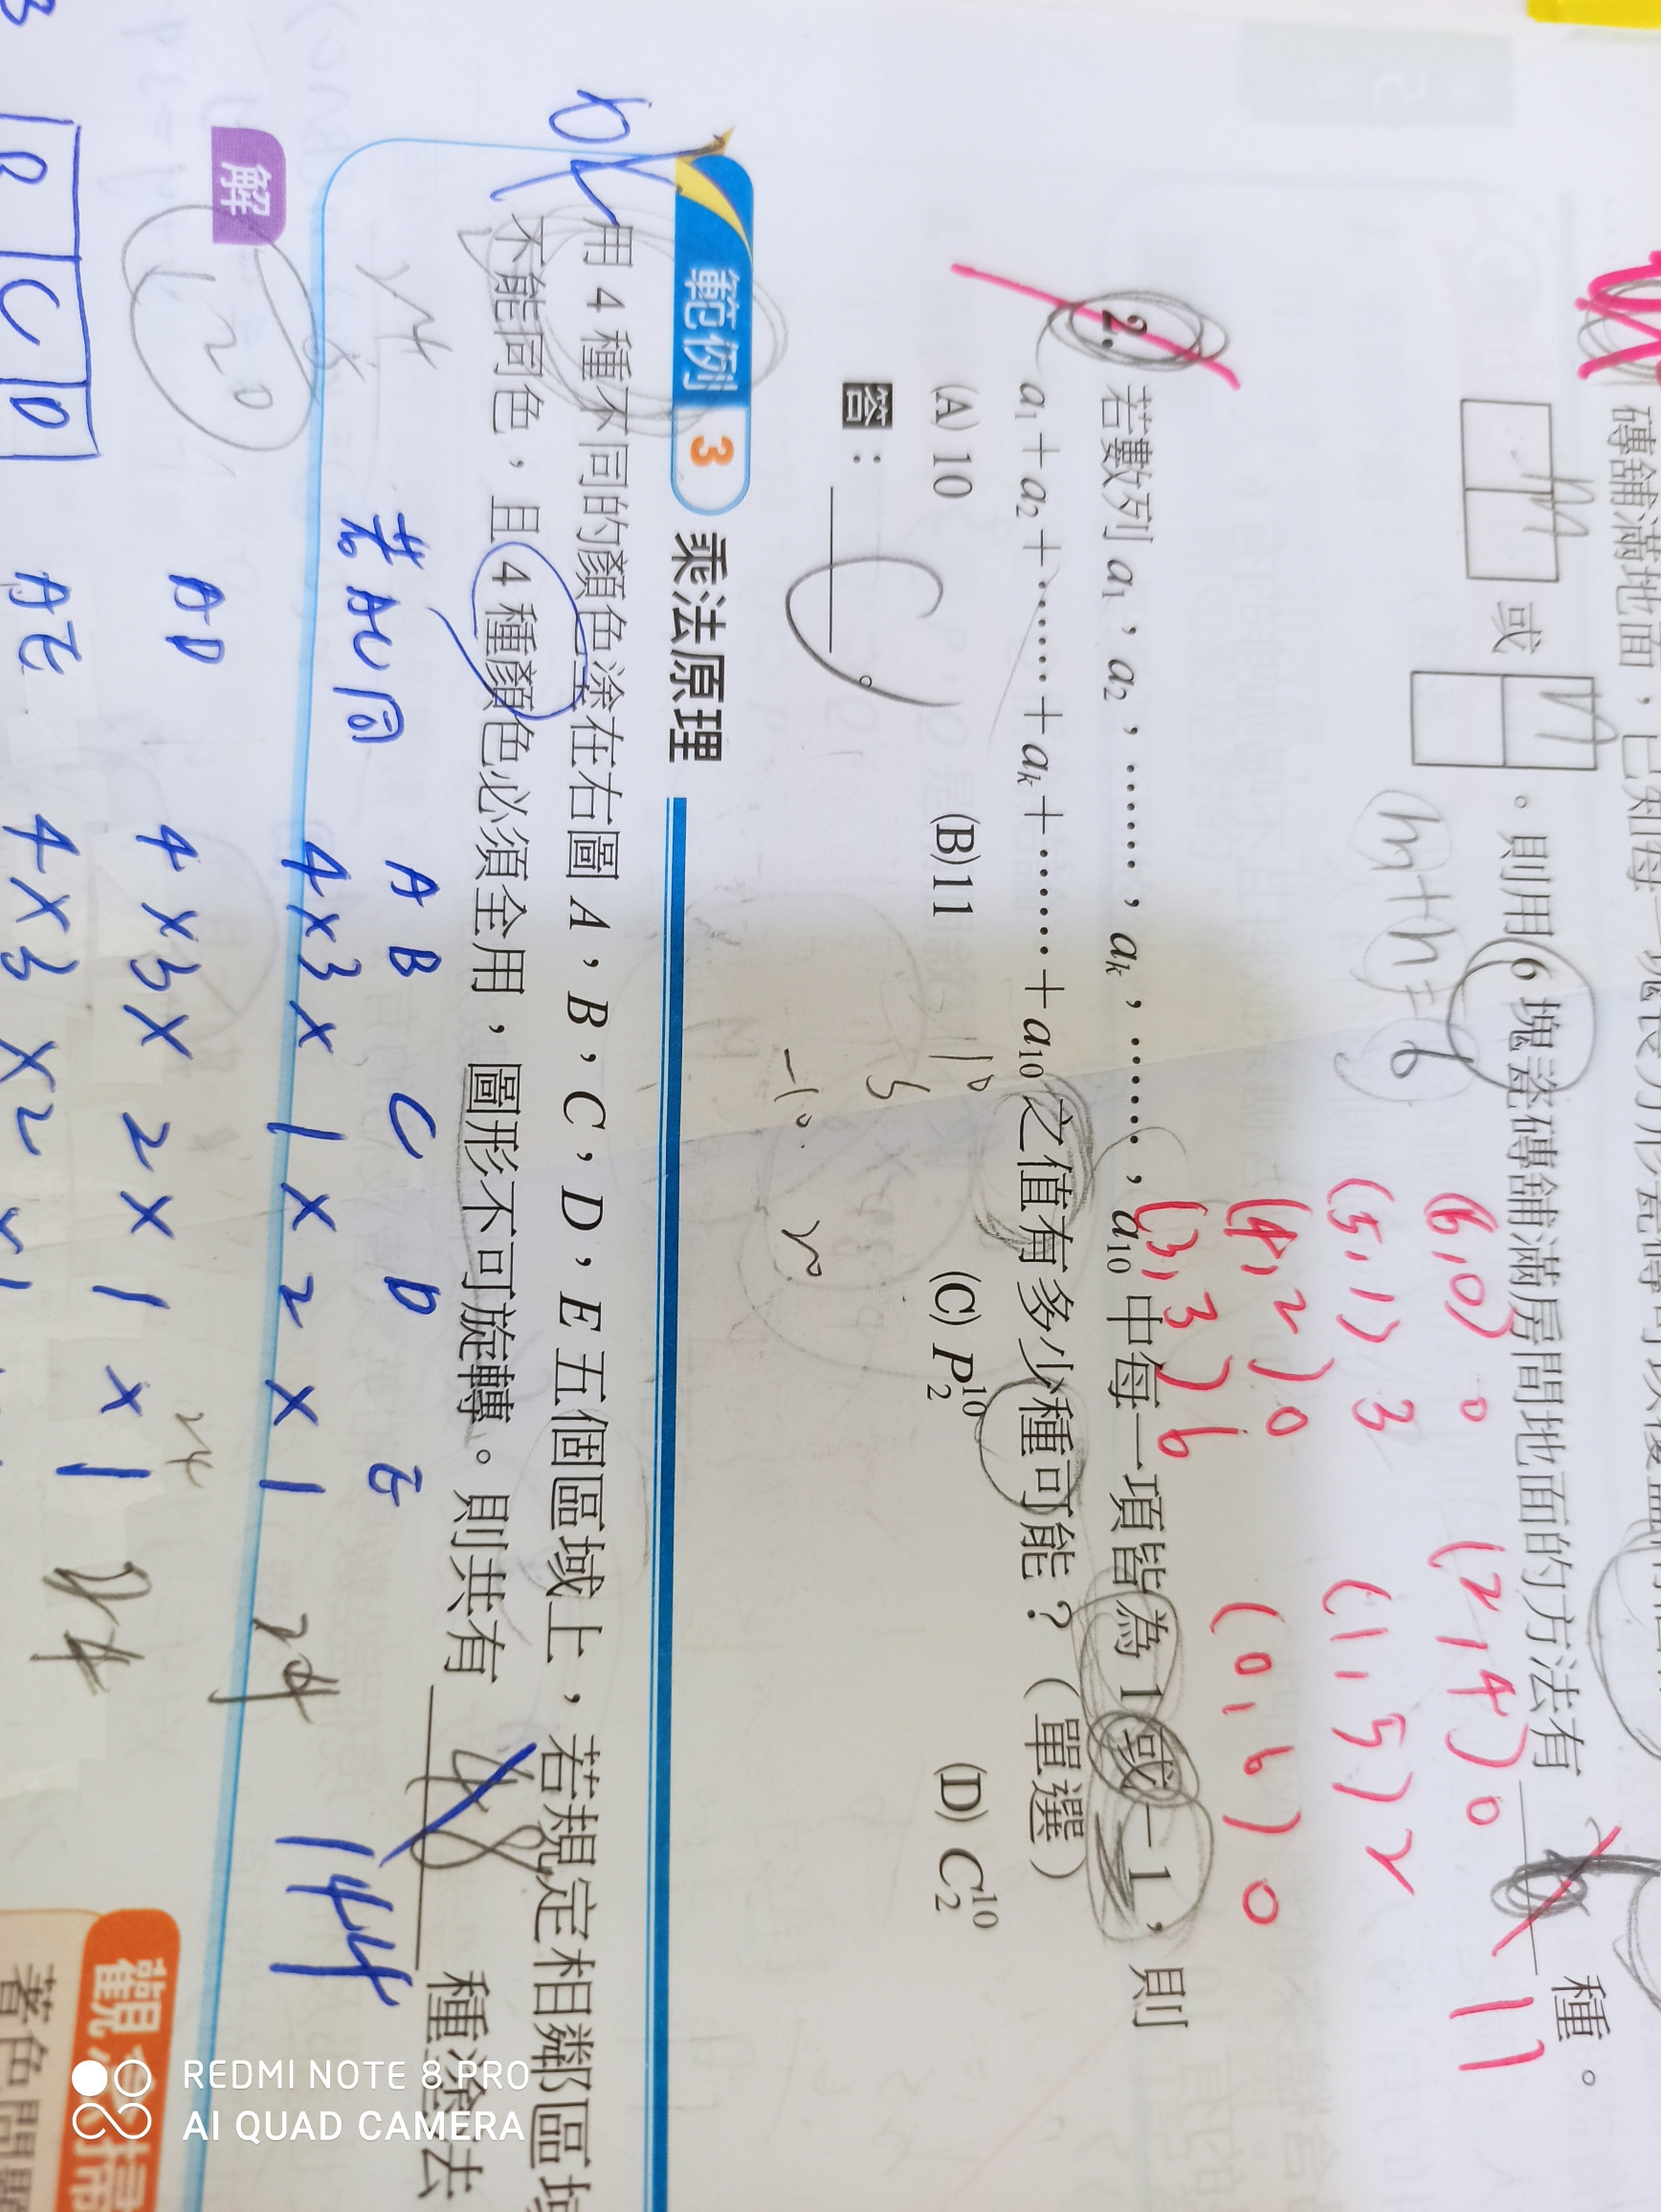 磚舖滿地面，已知每一塊長方形瓷磚可以覆蓋相鄰
或 。則用 6 塊瓷磚舖滿房間地面的方法有 種。
m
n
11
m+n=6
(6,0) 0 (2,4) 0
(5,1) 3 (1,5) 2
(4,2) 0 (0,6) 0
(3,3) 6
2. 若數列 a₁，a₂，……，aₖ，……，a₁₀ 中每一項皆為 1 或 −1，則
a₁＋a₂＋……＋aₖ＋……＋a₁₀ 之值有多少種可能？（單選）
(A) 10 (B)11 (C) P¹⁰₂ (D) C¹⁰₂
答：
C
10
-10
範例 3 乘法原理
用 4 種不同的顏色塗在右圖 A，B，C，D，E 五個區域上，若規定相鄰區域
不能同色，且 4 種顏色必須全用，圖形不可旋轉。則共有 48 種塗法
144
A B C D E
若AC同 4×3×1×2×1 24
AD 4×3×2×1×1 24
AE 4×3×2×1
解
120
B C D
觀念掃
著色問題
REDMI NOTE 8 PRO
AI QUAD CAMERA